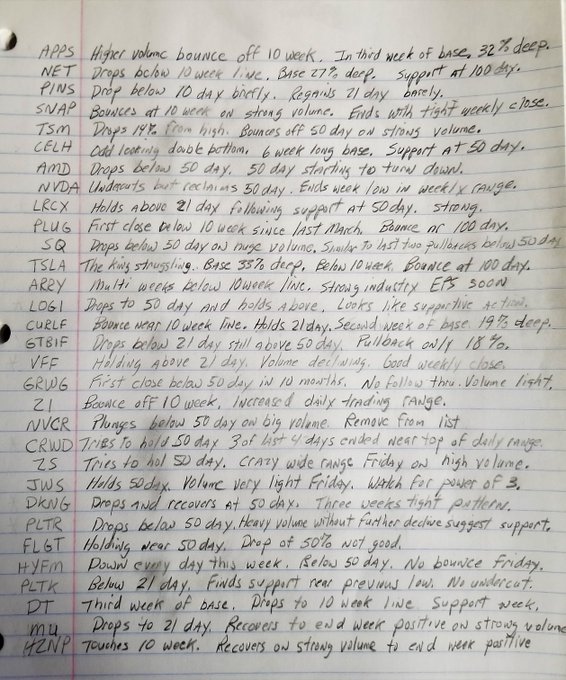 APPS Higher volume bounce off 10 week. In third week of base. 32% deep.
NET Drops below 10 week line. Base 27% deep. Support at 100 day.
PINS Drop below 10 day briefly. Regains 21 day barely.
SNAP Bounces at 10 week on strong volume. Ends with tight weekly close.
TSM Drops 19% from high. Bounces off 50 day on strong volume.
CELH Odd looking double bottom. 6 week long base. Support at 50 day.
AMD Drops below 50 day. 50 day starting to turn down.
NVDA Undercuts but reclaims 50 day. Ends week low in weekly range.
LRCX Holds above 21 day following support at 50 day. Strong.
PLUG First close below 10 week since last March. Bounce nr 100 day.
SQ Drops below 50 day on huge volume. Similar to last two pullbacks below 50 day
TSLA The king struggling. Base 33% deep. Below 10 week. Bounce at 100 day.
ARRY Multi weeks below 10 week line. Strong industry EPS soon
LOGI Drops to 50 day and holds above. Looks like supportive action.
CURLF Bounce near 10 week line. Holds 21 day. Second week of base 19% deep.
GTBIF Drops below 21 day still above 50 day. Pullback only 18%.
VFF Holding above 21 day. Volume declining. Good weekly close.
GRWG First close below 50 day in 10 months. No follow thru. Volume light.
ZI Bounce off 10 week. Increased daily trading range.
NVCR Plunges below 50 day on big volume. Remove from list
CRWD Tries to hold 50 day 3 of last 4 days ended near top of daily range.
ZS Tries to hol 50 day. Crazy wide range Friday on high volume.
JWS Holds 50 day. Volume very light Friday. Watch for power of 3.
DKNG Drops and recovers at 50 day. Three weeks tight pattern.
PLTR Drops below 50 day. Heavy volume without further decline suggest support.
FLGT Holding near 50 day. Drop of 50% not good.
HYFM Down every day this week. Below 50 day. No bounce Friday.
PLTK Below 21 day. Finds support near previous low. No undercut.
DT Third week of base. Drops to 10 week line. Support week.
MU Drops to 21 day. Recovers to end week positive on strong volume
HZNP Touches 10 week. Recovers on strong volume to end week positive